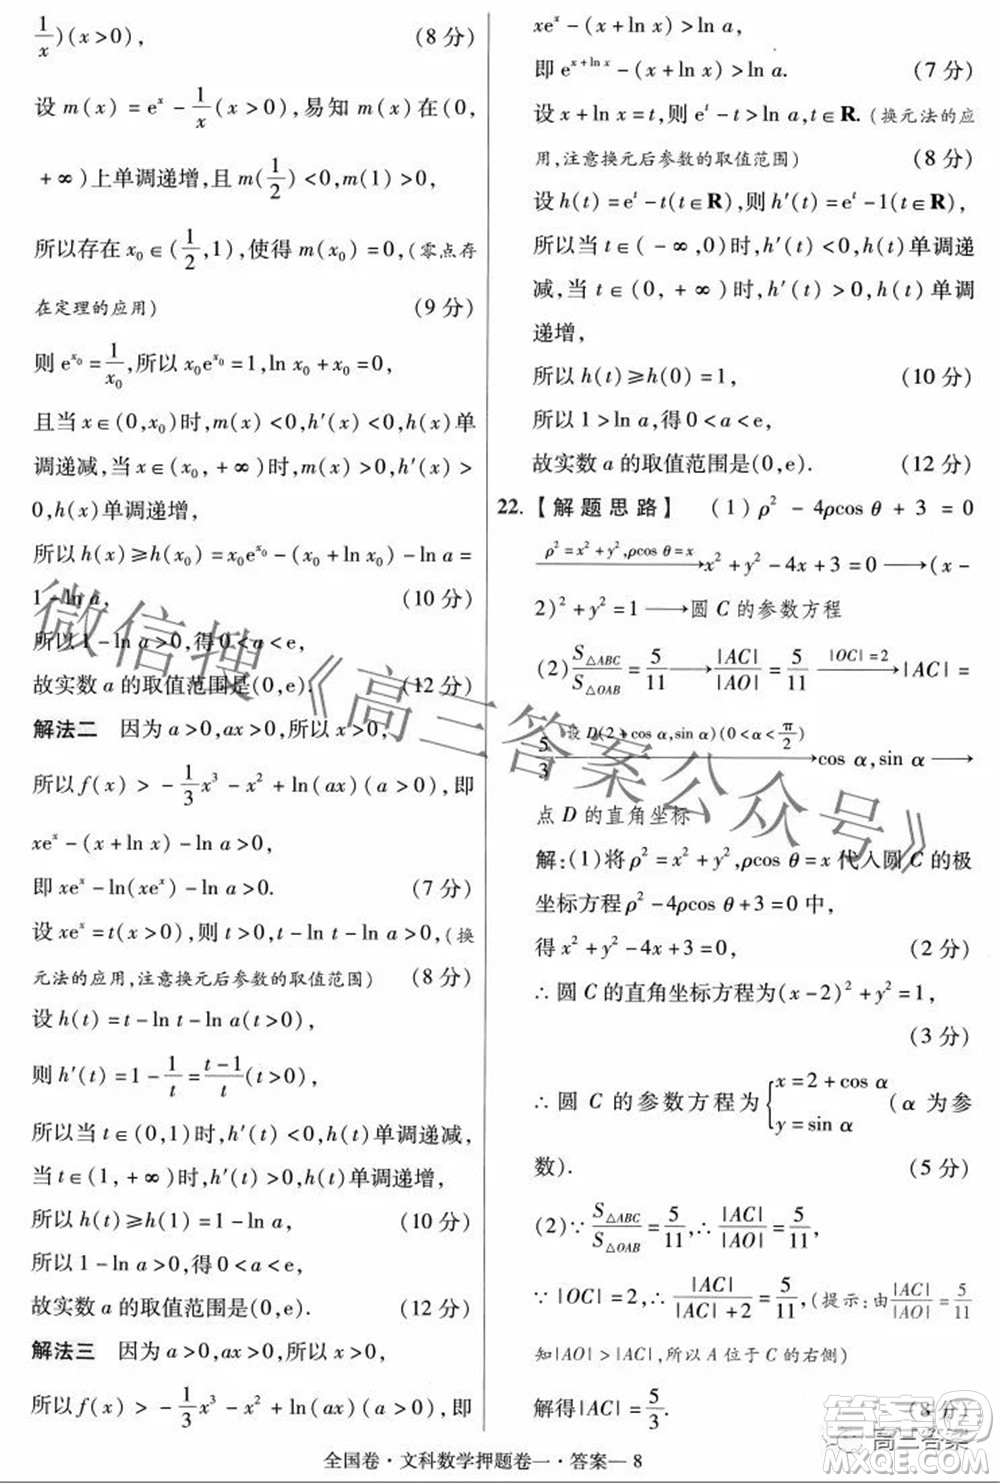 1/x)(x>0), (8分)
设 m(x)=eˣ-1/x(x>0),易知 m(x)在(0,
+∞)上单调递增,且 m(1/2)<0,m(1)>0,
所以存在 x₀∈(1/2,1),使得 m(x₀)=0,(零点存
在定理的应用) (9分)
则 e^{x₀}=1/x₀,所以 x₀e^{x₀}=1,ln x₀+x₀=0,
且当 x∈(0,x₀)时,m(x)<0,h′(x)<0,h(x)单
调递减,当 x∈(x₀,+∞)时,m(x)>0,h′(x)>
0,h(x)单调递增,
所以 h(x)≥h(x₀)=x₀e^{x₀}-(x₀+ln x₀)-ln a=
1-ln a, (10分)
所以 1-ln a>0,得 0<a<e,
故实数 a 的取值范围是(0,e). (12分)
解法二 因为 a>0,ax>0,所以 x>0,
所以 f(x)>-1/3x³-x²+ln(ax)+ln x,即
xeˣ-(x+ln x)-ln a>0,
即 xeˣ-ln(xeˣ)-ln a>0. (7分)
设 xeˣ=t(x>0),则 t>0,t-ln t-ln a>0,(换
元法的应用,注意换元后参数的取值范围) (8分)
设 h(t)=t-ln t-ln a(t>0),
则 h′(t)=1-1/t=(t-1)/t(t>0),
所以当 t∈(0,1)时,h′(t)<0,h(t)单调递减,
当 t∈(1,+∞)时,h′(t)>0,h(t)单调递增,
所以 h(t)≥h(1)=1-ln a, (10分)
所以 1-ln a>0,得 0<a<e,
故实数 a 的取值范围是(0,e). (12分)
解法三 因为 a>0,ax>0,所以 x>0,
所以 f(x)>-1/3x³-x²+ln(ax)+ln x,即
xeˣ-(x+ln x)>ln a,
即 e^{x+ln x}-(x+ln x)>ln a. (7分)
设 x+ln x=t,则 eᵗ-t>ln a,t∈R.(换元法的应
用,注意换元后参数的取值范围) (8分)
设 h(t)=eᵗ-t(t∈R),则 h′(t)=eᵗ-1(t∈R),
所以当 t∈(-∞,0)时,h′(t)<0,h(t)单调递
减,当 t∈(0,+∞)时,h′(t)>0,h(t)单调
递增,
所以 h(t)≥h(0)=1, (10分)
所以 1>ln a,得 0<a<e,
故实数 a 的取值范围是(0,e). (12分)
22.【解题思路】 (1)ρ²-4ρcos θ+3=0
ρ²=x²+y²,ρcos θ=x→x²+y²-4x+3=0→(x-
2)²+y²=1→圆 C 的参数方程
(2)S△ABC/S△OAB=5/11→|AC|/|AO|=5/11 |OC|=2→|AC|=
5/3 设 D(2+cos α,sin α)(0<α<π/2)→cos α,sin α→
点 D 的直角坐标
解:(1)将 ρ²=x²+y²,ρcos θ=x 代入圆 C 的极
坐标方程 ρ²-4ρcos θ+3=0 中,
得 x²+y²-4x+3=0, (2分)
∴圆 C 的直角坐标方程为(x-2)²+y²=1,
(3分)
∴圆 C 的参数方程为{x=2+cos α y=sin α(α 为参
数). (5分)
(2)∵S△ABC/S△OAB=5/11,∴|AC|/|AO|=5/11,
∵|OC|=2,∴|AC|/(|AC|+2)=5/11,(提示:由|AC|/|AO|=5/11
知|AO|>|AC|,所以 A 位于 C 的右侧)
解得|AC|=5/3. (8分)
全国卷·文科数学押题卷一·答案—8
微信搜《高三答案公众号》
高三答案
答案圈
MXQE.COM